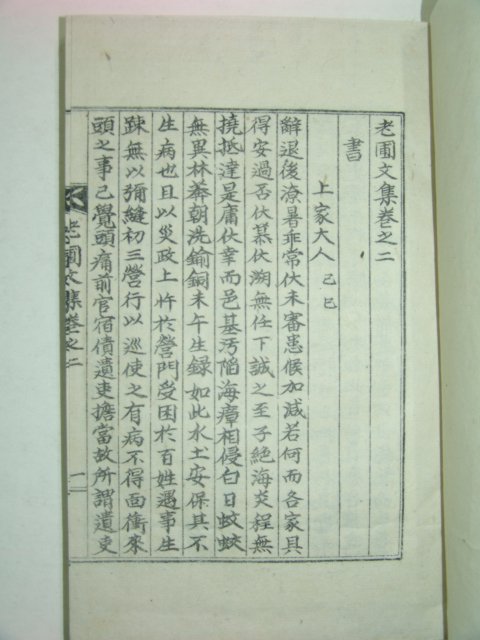 老圃文集卷之二
書
上家大人 己巳
辭退後潦暑非常伏未審患候加減若何而各家具
得安過否伏慕伏溯無任下誠之至子絶海炎程無
撓抵達是庸伏幸而邑基汚陷海瘴相侵白日蚊蛟
無異林莽朝洗鍮銅未午生綠如此水土安保其不
生病也且以災政上忤於營門受困於百姓遇事生
踈無以彌縫初三營行以巡使之有病不得面衝來
頭之事已覺頭痛前官宿債遺吏擔當故所謂遺吏
老圃文集卷之二 一